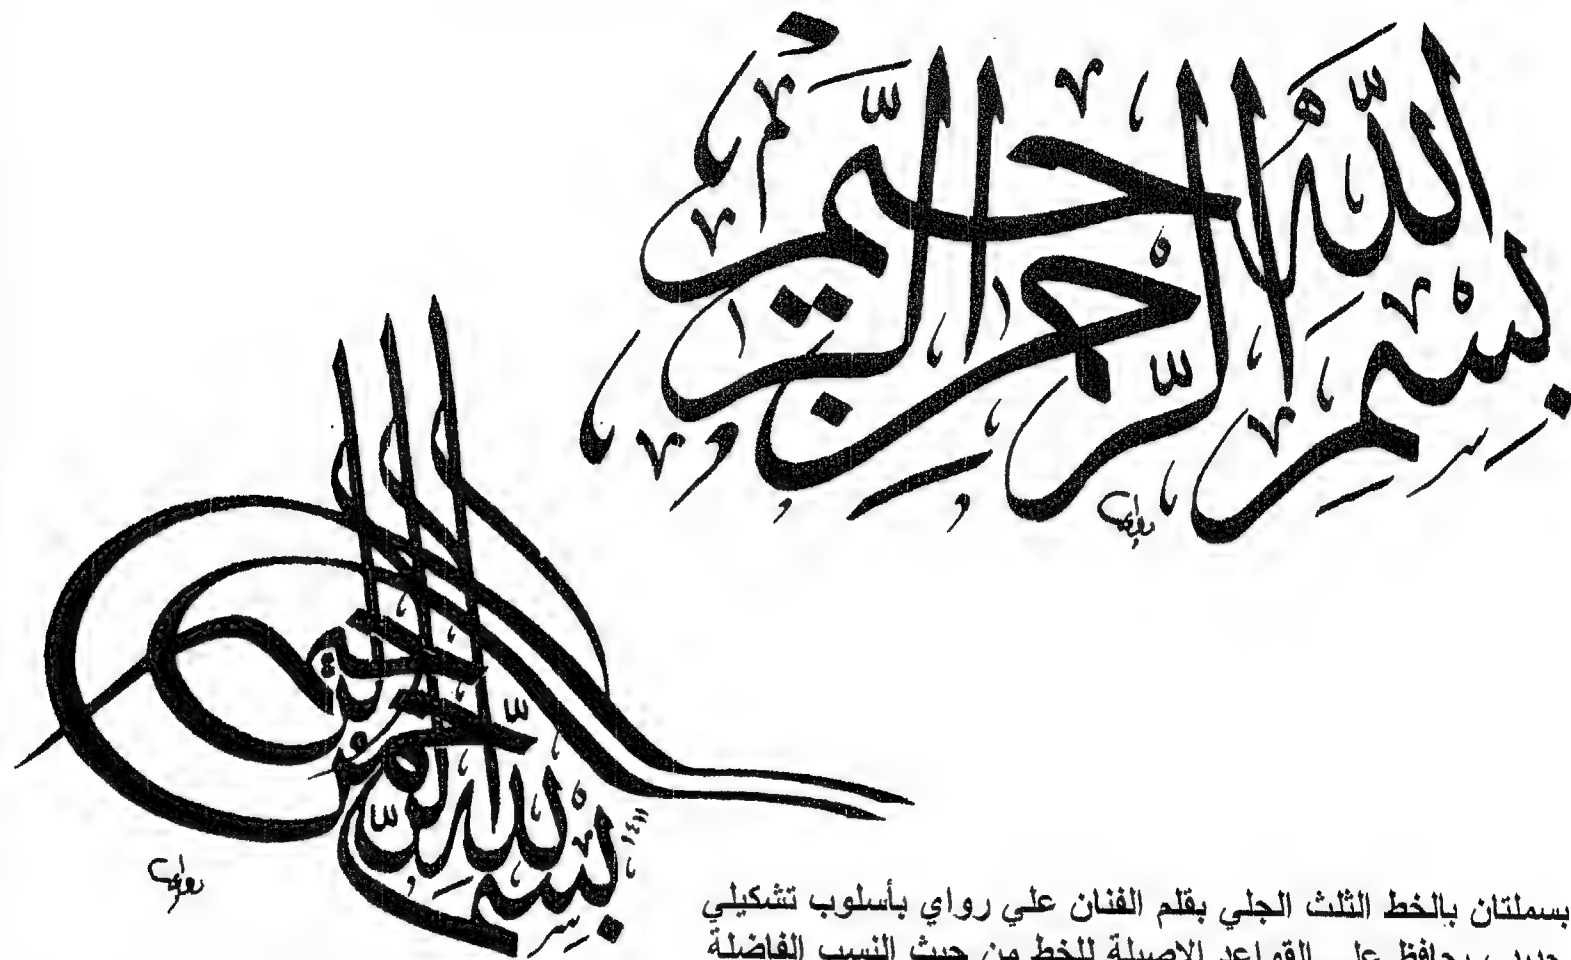 بِسْمِ اللّٰهِ الرَّحْمٰنِ الرَّحِيمِ
رواي
بسم الله الرحمن الرحيم
١٤١١
رواي
بسملتان بالخط الثلث الجلي بقلم الفنان علي رواي بأسلوب تشكيلي
يحافظ على القواعد الاصيلة للخط من حيث النسب الفاضلة